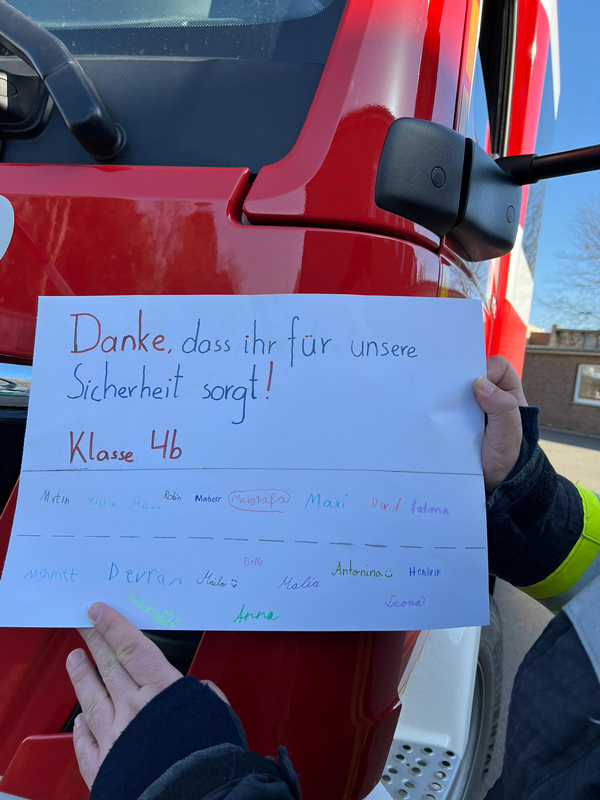 Danke, dass ihr für unsere
Sicherheit sorgt!
Klasse 4b
Matin Yassin Robin Maheer Mustafa Maxi David fatima
Mehmet Devran Mailo Belle Malia Antonina Hendrik
Anna Leona